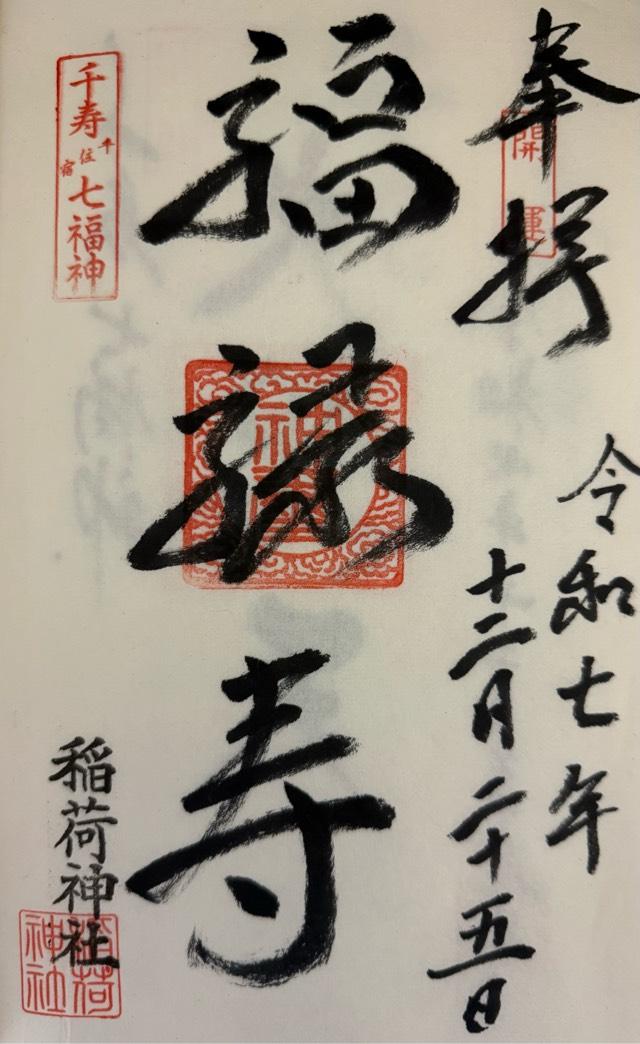 奉拝
開運
令和七年
十二月二十五日
福禄寿
千寿七福神
千住宿
稲荷神社
稲荷神社